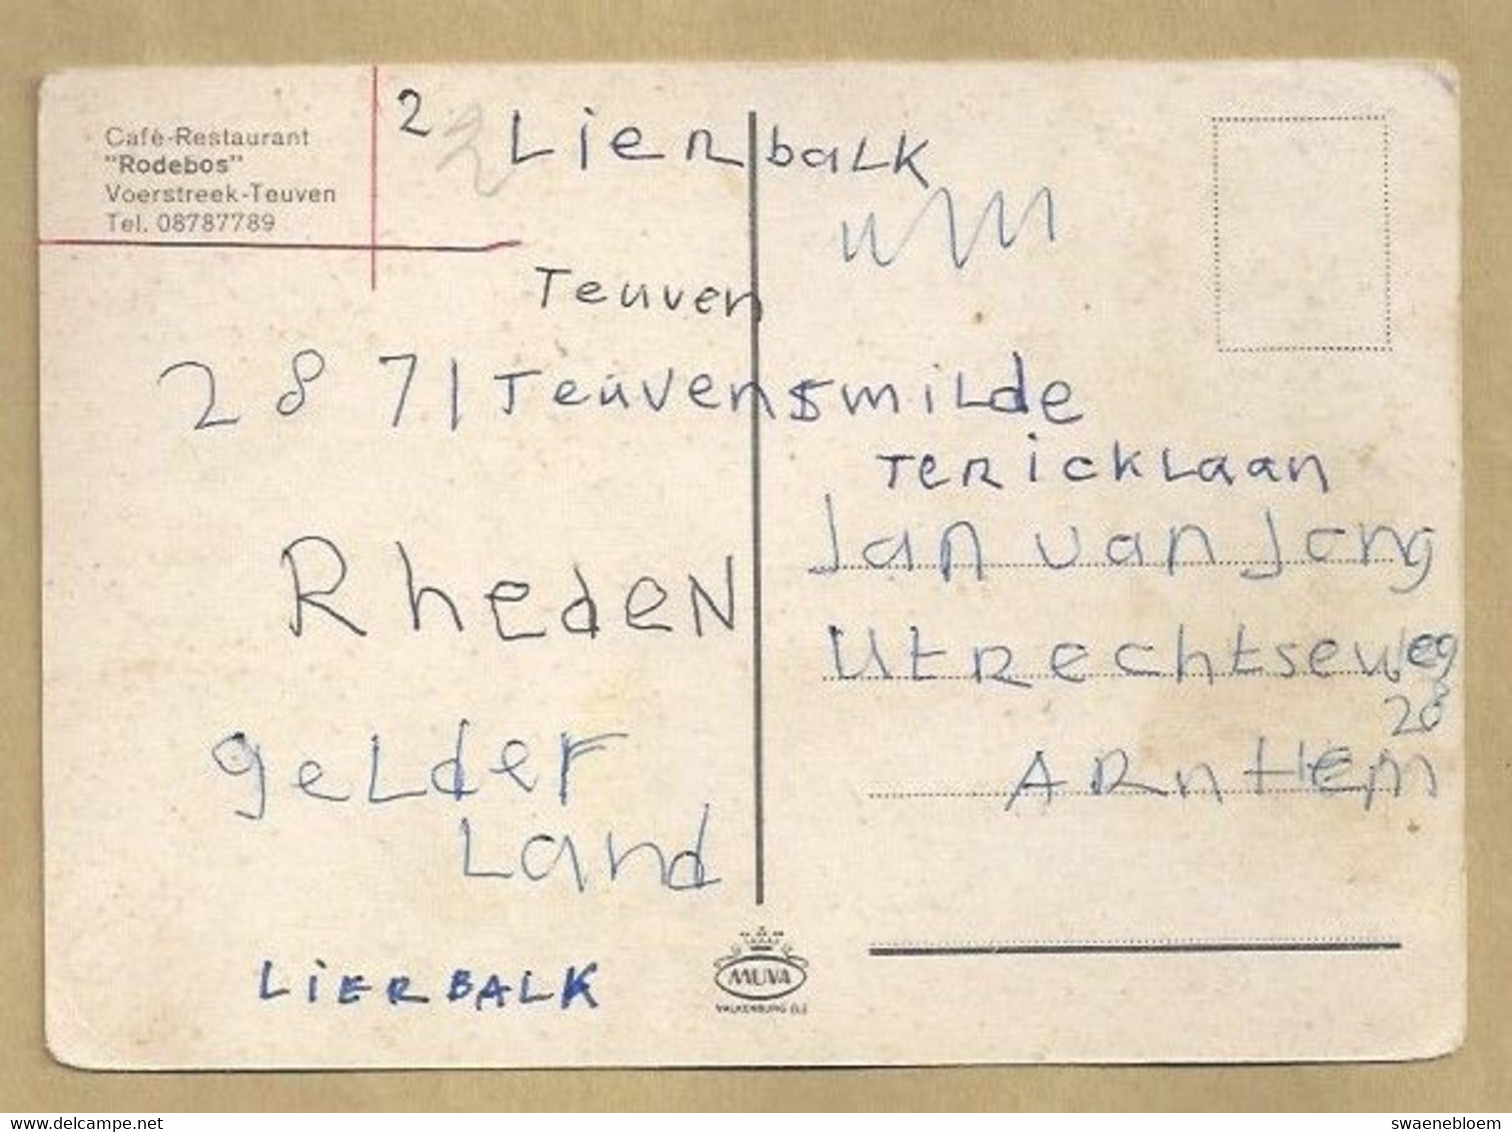 Café-Restaurant
"Rodebos"
Voerstreek-Teuven
Tel. 08787789
2 2 Lierbalk
Teuven
2871 Teuvensmilde
Tericklaan
Jan van Jong
Utrechtseweg
28
ARnHem
RhedeN
gelder
Land
LiERBALK
MUVA
VALKENBURG
delcampe.net
swaenebloem